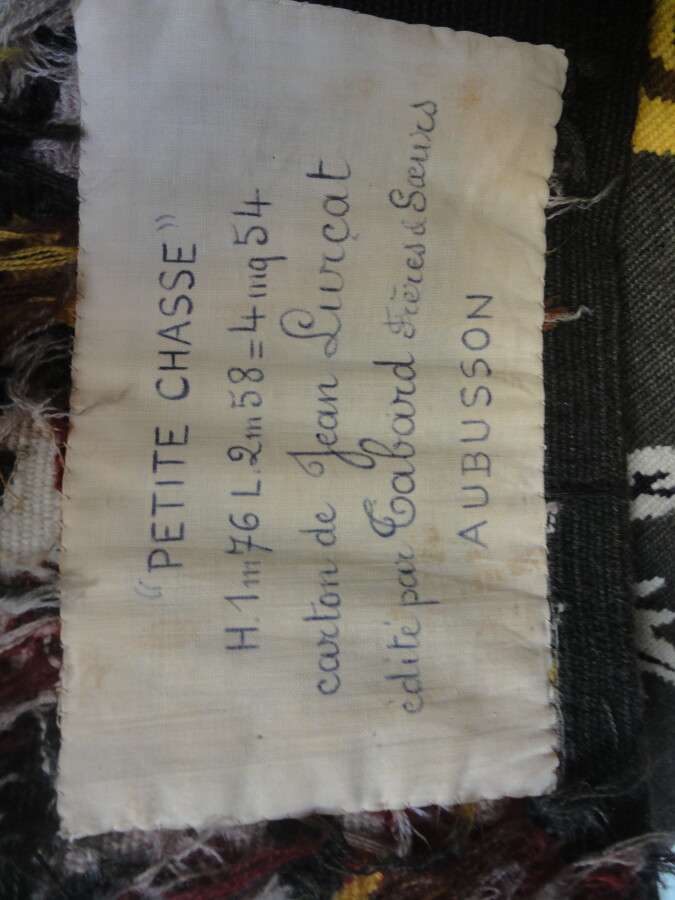 “PETITE CHASSE”
H.1m76 L.2m58=4mq54
carton de Jean Lurçat
édité par Tabard Frères & Sœurs
AUBUSSON